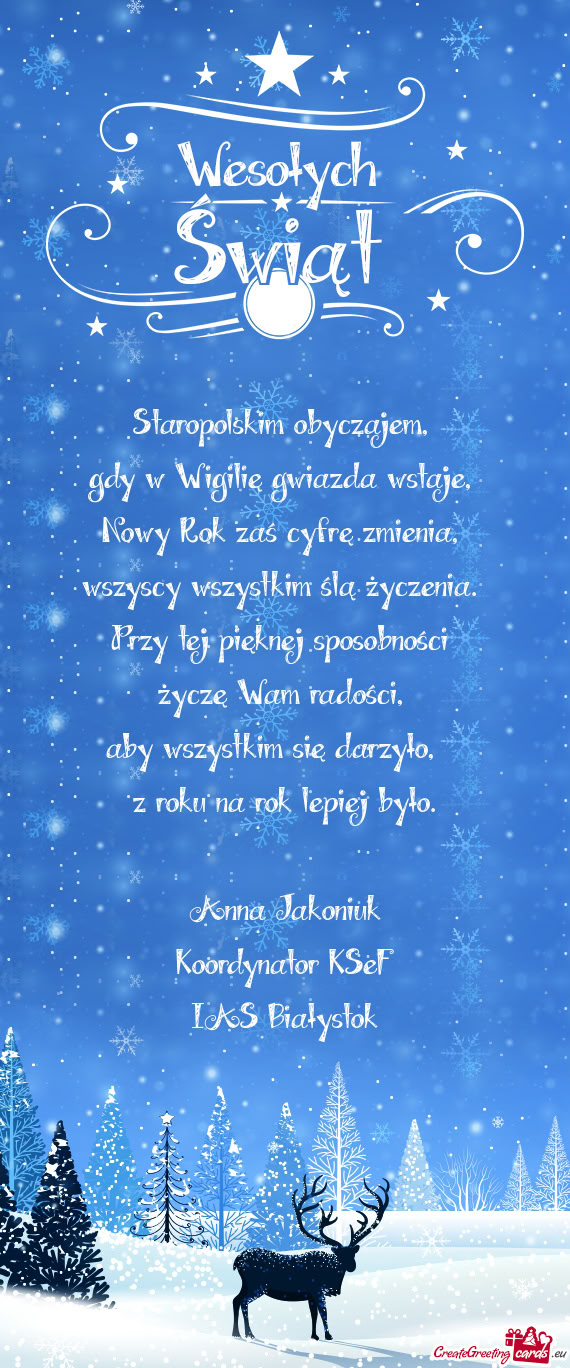 Wesołych
Świąt
Staropolskim obyczajem,
gdy w Wigilię gwiazda wstaje,
Nowy Rok zaś cyfrę zmienia,
wszyscy wszystkim ślą życzenia.
Przy tej pięknej sposobności
życzę Wam radości,
aby wszystkim się darzyło,
z roku na rok lepiej było.
Anna Jakoniuk
Koordynator KSeF
IAS Białystok
CreateGreetingcards.eu